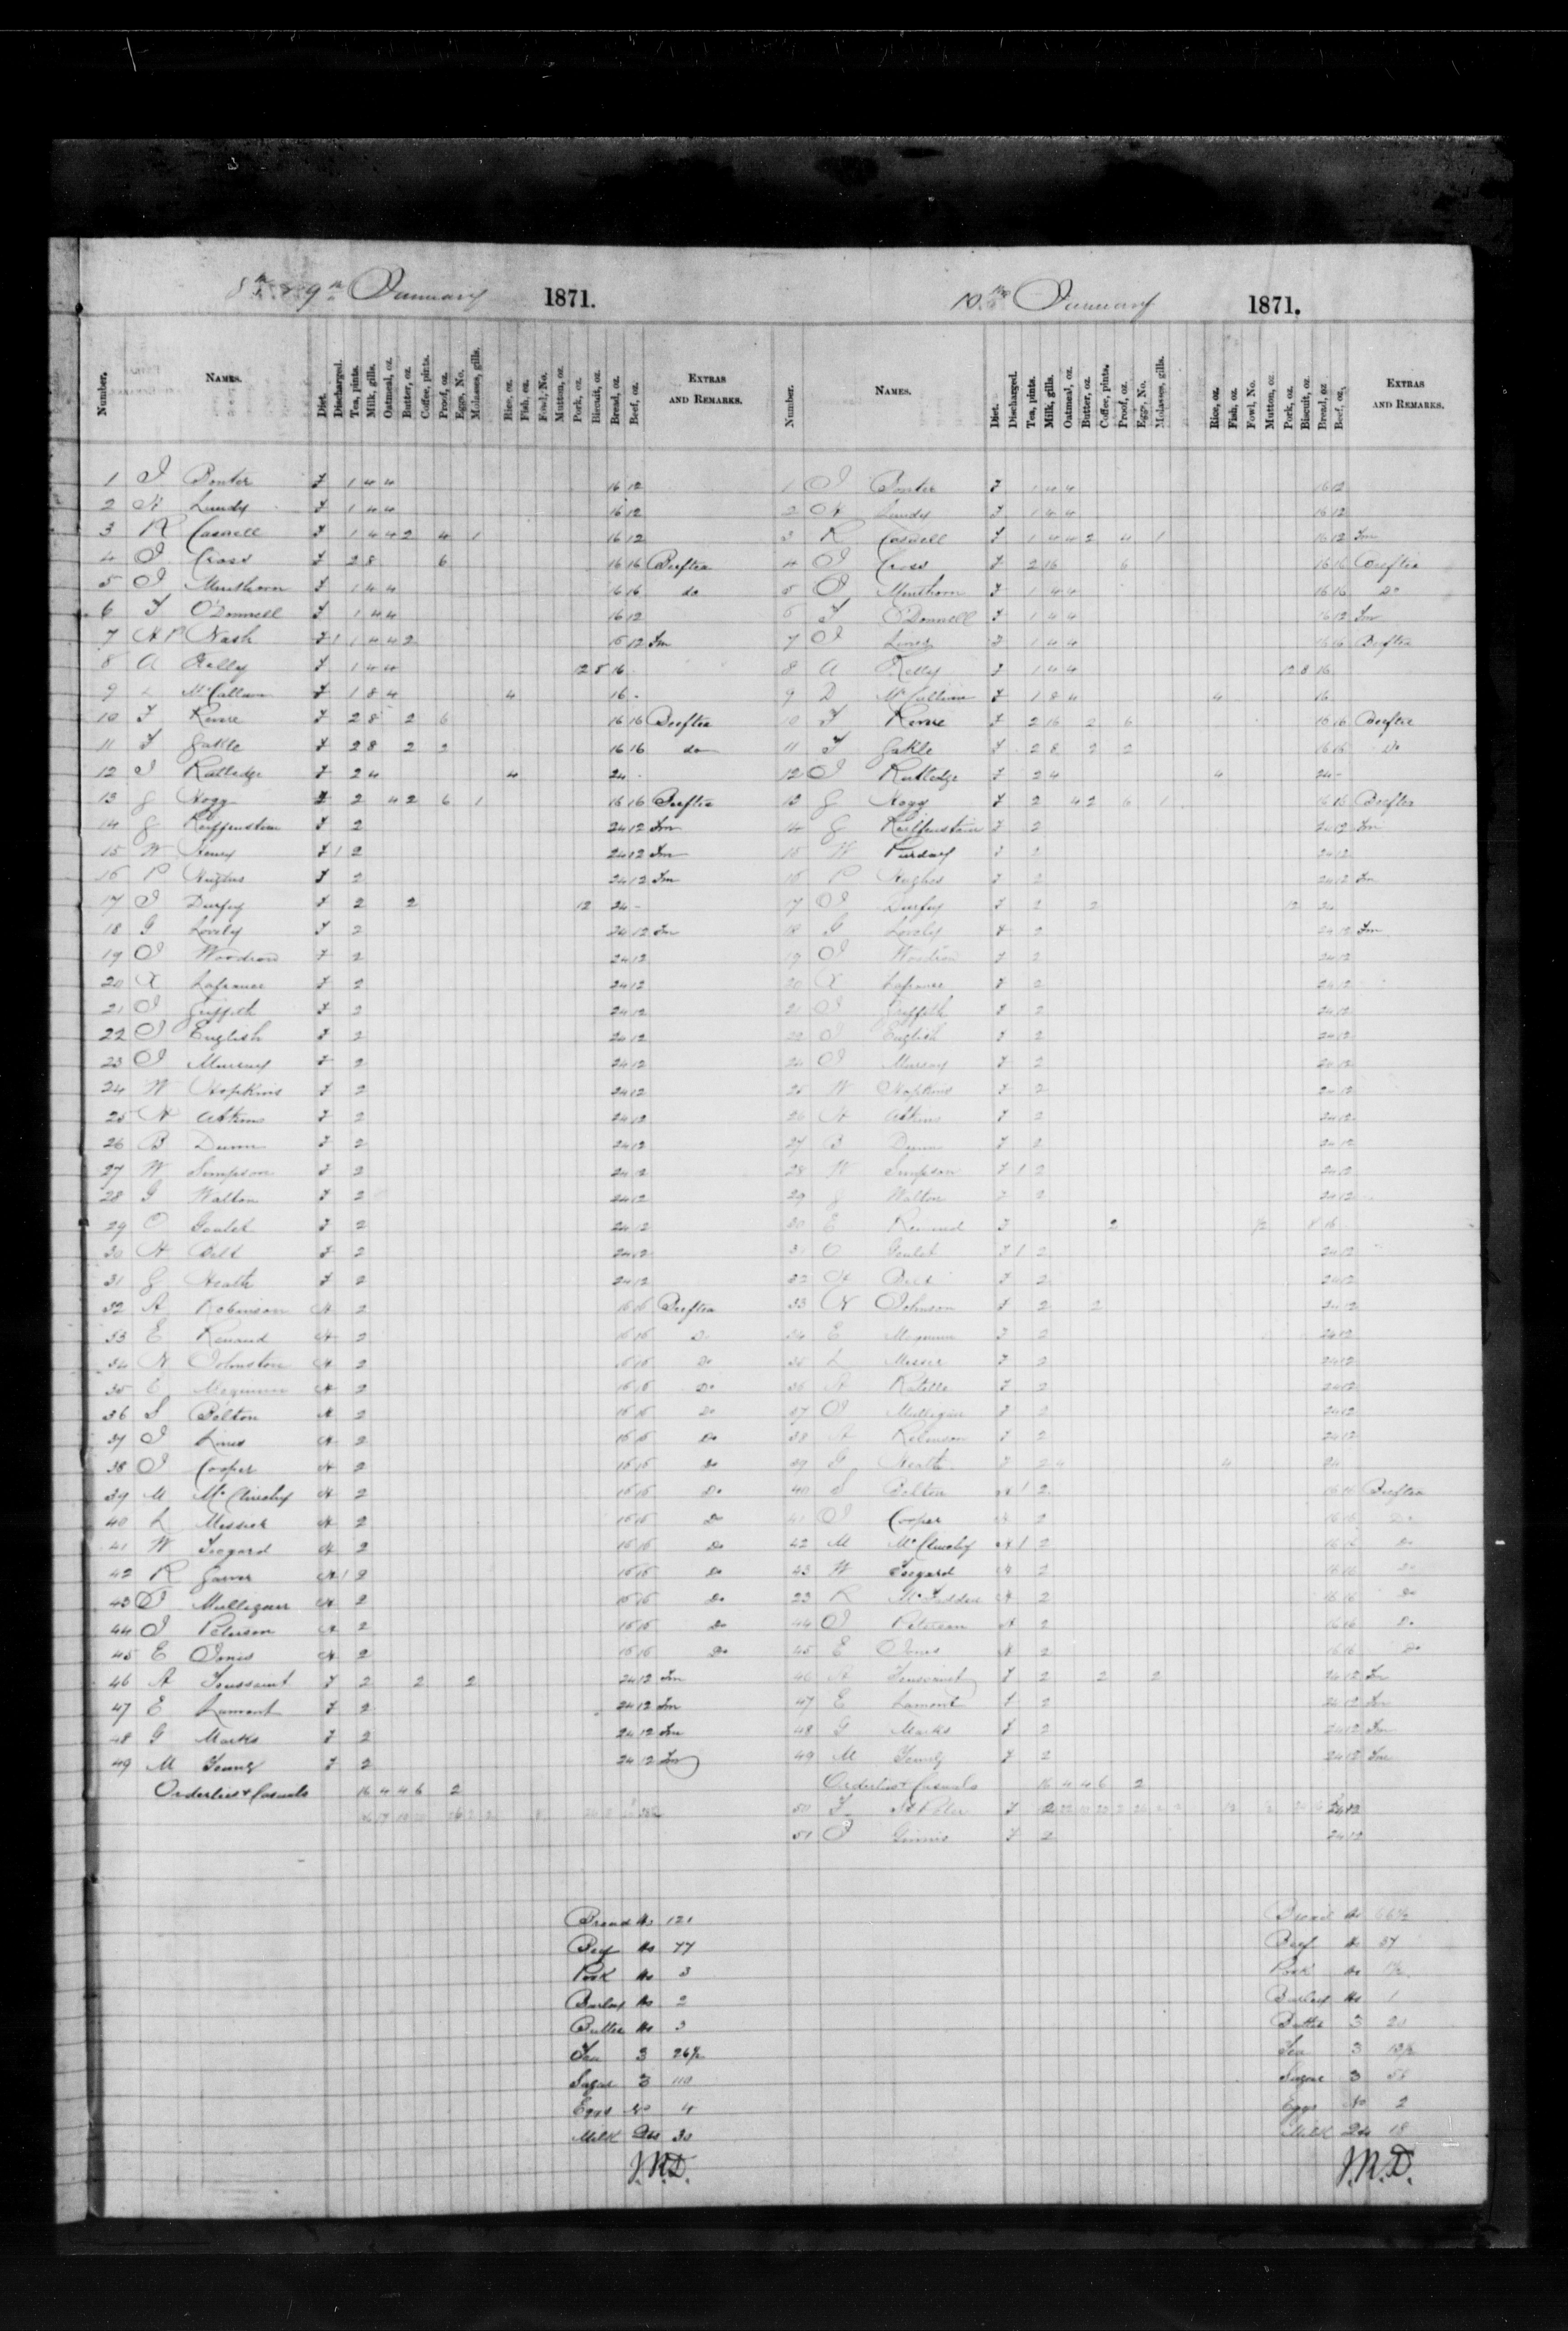 8th & 9th January 1871.
Number. NAMES. Diet. Discharged. Tea, pints. Milk, gills. Oatmeal, oz. Butter, oz. Coffee, pints. Proof, oz. Eggs, No. Molasses, gills. Rice, oz. Fish, oz. Fowl, No. Mutton, oz. Pork, oz. Biscuit, oz. Bread, oz. Beef, oz. EXTRAS AND REMARKS.
1 J Bonter F 1 4 4 16 12
2 Lundy F 1 4 4 16 12
3 R Casnell F 1 4 4 2 4 1 16 12
4 J Cross F 2 8 6 16 16 Beeftea
5 J Minthorn F 1 4 4 16 16 do
6 F O'Donnell F 1 4 4 16 12
7 H P Nash F 1 1 4 4 2 16 12 Im
8 A Kelly F 1 4 4 12 8 16
9 McCallum F 1 8 4 4 16
10 F 2 8 2 6 16 16 Beeftea
11 F Gakle F 2 8 2 2 16 16 do
12 J Rutledge F 2 4 4 24
13 G Hogg F 2 4 2 6 1 16 16 Beeftea
14 G Reiffenstein F 2 24 12 Im
15 W Henry F 1 2 24 12 Im
16 P Hughes F 2 24 12 Im
17 J Durfey F 2 2 12 24
18 G Lovely F 2 24 12 Im
19 J Woodrow F 2 24 12
20 X Lafrance F 2 24 12
21 J Griffith F 2 24 12
22 J English F 2 24 12
23 J Murray F 2 24 12
24 W Hopkins F 2 24 12
25 H Atkins F 2 24 12
26 B Dunn F 2 24 12
27 W Simpson F 2 24 12
28 G Walton F 2 24 12
29 O Goulet F 2 24 12
30 H F 2 24 12
31 G Heath F 2 24 12
32 A Robinson H 2 16 16 Beeftea
33 E Renaud H 2 16 16 Do
34 N Johnston H 2 16 16 Do
35 E Meguinn H 2 16 16 Do
36 S Bolton H 2 16 16 Do
37 J Lines H 2 16 16 Do
38 J Cooper H 2 16 16 Do
39 M McClinchy H 2 16 16 Do
40 L H 2 16 16 Do
41 W H 2 16 16 Do
42 R Garver H 1 2 16 16 Do
43 J Mulligan H 2 16 16 Do
44 J Peterson H 2 16 16 Do
45 E Jones H 2 16 16 Do
46 A Toussaint F 2 2 2 24 12 Im
47 E Lamont F 2 24 12 Im
48 G Marks F 2 24 12 Im
49 M Young F 2 24 12 Im
Orderlies & Casuals 16 4 4 6 2
Bread lbs 121
Beef lbs 77
Pork lbs 3
Barley lbs 2
Butter lbs 3
Tea 3 26½
Sugar 3 110
Eggs No 4
Milk Qts 30
J.M.D.
10th January 1871.
Number. NAMES. Diet. Discharged. Tea, pints. Milk, gills. Oatmeal, oz. Butter, oz. Coffee, pints. Proof, oz. Eggs, No. Molasses, gills. Rice, oz. Fish, oz. Fowl, No. Mutton, oz. Pork, oz. Biscuit, oz. Bread, oz. Beef, oz. EXTRAS AND REMARKS.
1 J Bonter F 1 4 4 16 12
2 Lundy F 1 4 4 16 12
3 R Casnell F 1 4 4 2 4 1 16 12 Im
4 J Cross F 2 16 6 16 16 Beeftea
5 J Minthorn F 1 4 4 16 16 Do
6 F O'Donnell F 1 4 4 16 12 Im
7 J Lines F 1 4 4 16 16 Beeftea
8 A Kelly F 1 4 4 12 8 16
9 D McCallum F 1 8 4 4 16
10 F F 2 16 2 6 16 16 Beeftea
11 F Gakle F 2 8 2 2 16 16 Do
12 J Rutledge F 2 4 4 24
13 G Hogg F 2 4 2 6 1 16 16 Beeftea
14 G Reiffenstein F 2 24 12 Im
15 W Purday F 2 24 12
16 P Hughes F 2 24 12 Im
17 J Durfey F 2 2 12 24
18 G Lovely F 2 24 12 Im
19 J Woodrow F 2 24 12
20 X Lafrance F 2 24 12
21 J Griffith F 2 24 12
22 J English F 2 24 12
24 J Murray F 2 24 12
25 W Hopkins F 2 24 12
26 H Atkins F 2 24 12
27 B Dunn F 2 24 12
28 W Simpson F 1 2 24 12
29 G Walton F 2 24 12
30 E Renaud F 2 ½ 8 16
31 O Goulet F 1 2 24 12
32 H F 2 24 12
33 N Johnson F 2 2 24 12
34 E Meguinn F 2 24 12
35 L F 2 24 12
36 A Ratelle F 2 24 12
37 J Mulligan F 2 24 12
38 A Robinson F 2 24 12
39 G Heath F 2 4 4 24
40 S Bolton H 1 2 16 16 Beeftea
41 J Cooper H 2 16 16 Do
42 M McClinchy H 1 2 16 16 Do
43 W H 2 16 16 Do
23 R McFadden H 2 16 16 Do
44 J Peterson H 2 16 16 Do
45 E Jones H 2 16 16 Do
46 A Toussaint F 2 2 2 24 12 Im
47 E Lamont F 2 24 12 Im
48 G Marks F 2 24 12 Im
49 M Young F 2 24 12 Im
Orderlies & Casuals 16 4 4 6 2
50 F St Peter F 2 24 12
51 J F 2 24 12
Bread lbs 66½
Beef lbs 37
Pork lbs 1½
Barley lbs 1
Butter 3 20
Tea 3 13½
Sugar 3 55
Eggs No 2
Milk Qts 18
J.M.D.